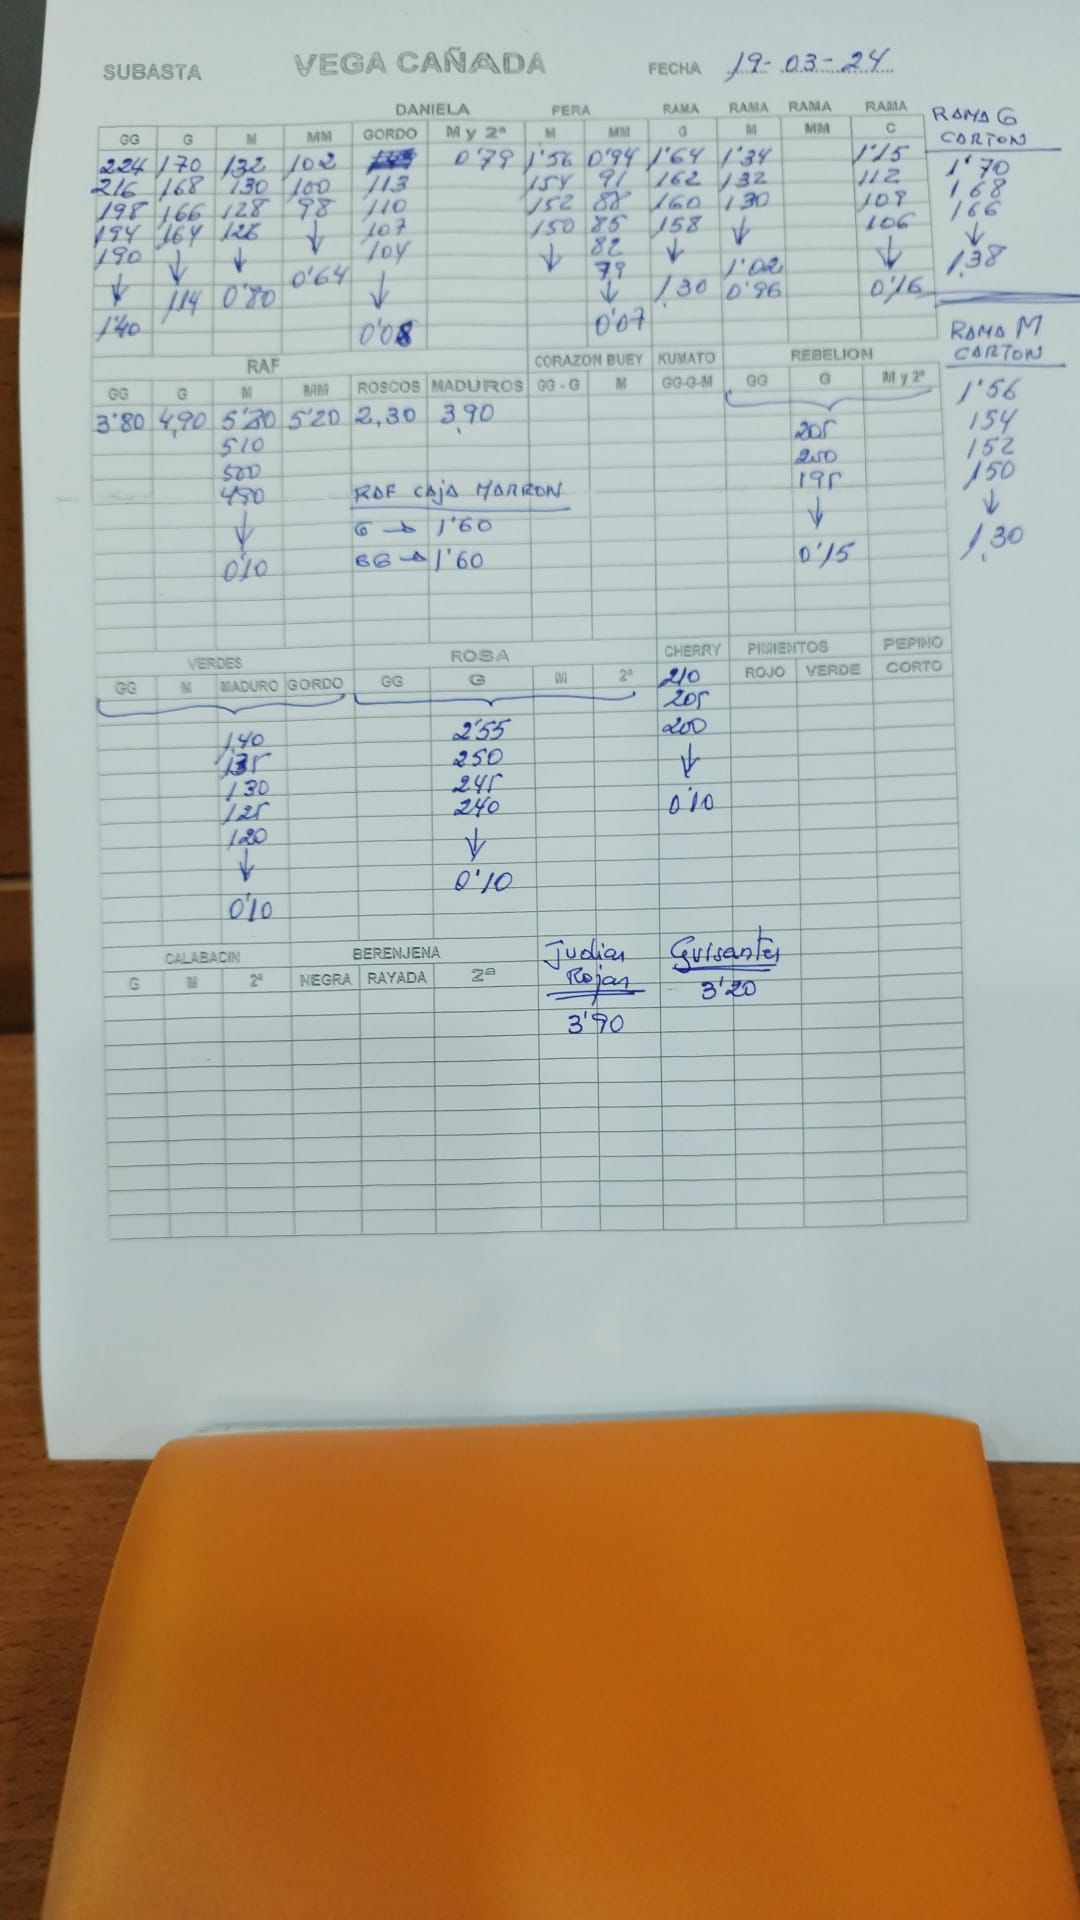 SUBASTA VEGA CAÑADA FECHA 19-03-24
DANIELA PERA RAMA RAMA RAMA RAMA RAMA G
GG G M MM GORDO M y 2ª M MM G M MM C CARTON
224 170 132 102 0'79 1'56 0'94 1'64 1'34 1'15 1'70
216 168 130 100 113 154 91 162 132 112 168
198 166 128 98 110 152 88 160 130 109 166
194 164 126 ↓ 107 150 85 158 ↓ 106 ↓
190 ↓ ↓ 0'64 104 ↓ 82 ↓ 1'02 ↓ 1,38
↓ 114 0'80 ↓ 79 1,30 0'96 0'16
1'40 0'08 ↓ RAMA M
0'07 CARTON
RAF CORAZON BUEY KUMATO REBELION
GG G M MM ROSCOS MADUROS GG - G M GG-G-M GG G M y 2ª 1'56
3'80 4,90 5'20 5'20 2,30 3,90 205 154
510 200 152
500 195 150
490 RAF CAJA MARRON ↓ ↓
↓ G → 1'60 0'15 1,30
0'10 GG → 1'60
VERDES ROSA CHERRY PIMIENTOS PEPINO
GG M MADURO GORDO GG G M 2ª 210 ROJO VERDE CORTO
205
1,40 2'55 200
135 250 ↓
130 245 0'10
125 240
120 ↓
↓ 0'10
0'10
CALABACIN BERENJENA Judias Guisantes
G M 2ª NEGRA RAYADA 2ª Rojas 3'20
3'90